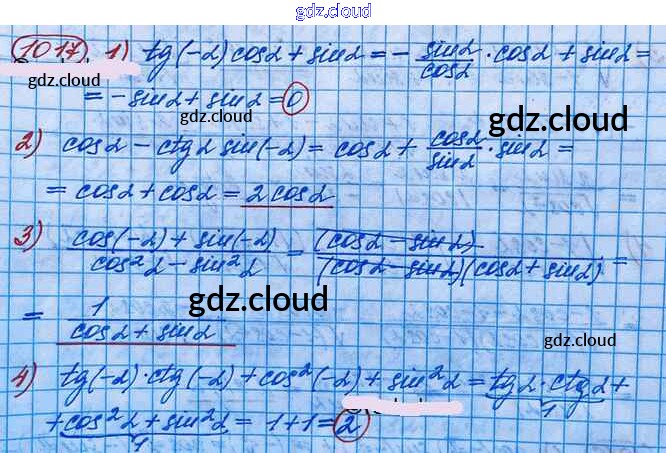 gdz.cloud
1017 1) tg(-α) cosα + sinα = - sinα/cosα · cosα + sinα =
gdz.cloud
= - sinα + sinα = 0
gdz.cloud
gdz.cloud
2) cosα - ctgα sin(-α) = cosα + cosα/sinα · sinα =
= cosα + cosα = 2cosα
3) (cos(-α) + sin(-α))/(cos²α - sin²α) = (cosα - sinα)/((cosα - sinα)(cosα + sinα)) =
gdz.cloud
= 1/(cosα + sinα)
gdz.cloud
4) tg(-α)·ctg(-α) + cos²(-α) + sin²α = tgα·ctgα +
1
+ cos²α + sin²α = 1+1= 2
1
gdz.cloud